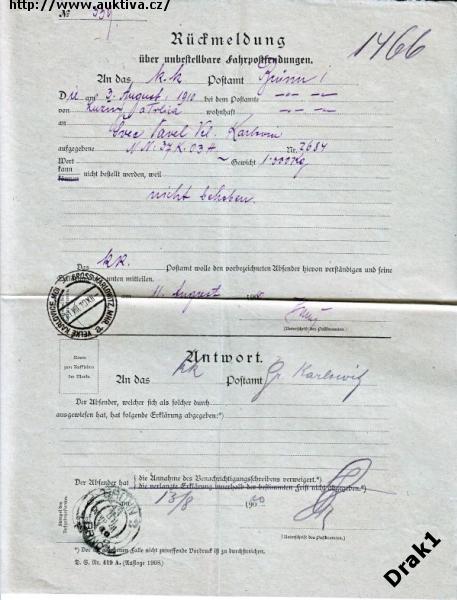 Zdroj: www.auktiva.cz/
№ 339
Rückmeldung
über unbestellbare Fahrpostsendungen.
1466
An das k.k. Postamt Brünn 1
Die am 3. August 1910 bei dem Postamte
von wohnhaft
an Svec Pavel Vel. Karlovic
aufgegebene Nr. 2684
Wert Gewicht 1·000 Kg
kann
können nicht bestellt werden, weil
nicht behoben.
Das k.k. Postamt wolle den vorbezeichneten Absender hievon verständigen und seine
unten mitteilen.
GROSS-KARLOWITZ, MHR. VELKÉ KARLOVICE, MOR.
11. August 19
(Unterschrift des Postbeamten.)
Antwort.
Raum
zum Aufkleben
der Marke.
An das kk Postamt Gr. Karlowitz
Der Absender, welcher sich als solcher durch
ausgewiesen hat, hat folgende Erklärung abgegeben:*)
Der Absender hat die Annahme des Benachrichtigungsschreibens verweigert.*)
die verlangte Erklärung innerhalb der bestimmten Frist nicht abgegeben.*)
am 13/8 19
BRÜNN
BRNO
(Unterschrift des Postbeamten.)
*) Der im gegebenen Falle nicht zutreffende Vordruck ist zu durchstreichen.
D. S. Nr. 419 A. (Auflage 1908.)
Drak1